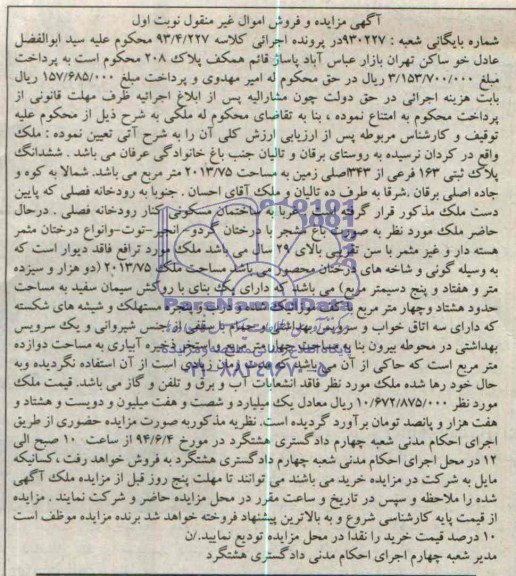 آگهی مزایده و فروش اموال غیر منقول نوبت اول
شماره بایگانی شعبه : ۹۳۰۲۲۷در پرونده اجرائی کلاسه ۹۳/۴/۲۲۷ محکوم علیه سید ابوالفضل
عادل خو ساکن تهران بازار عباس آباد پاساژ قائم همکف پلاک ۲۰۸ محکوم است به پرداخت
مبلغ ۳/۱۵۳/۷۰۰/۰۰۰ ریال در حق محکوم له امیر مهدوی و پرداخت مبلغ ۱۵۷/۶۸۵/۰۰۰ ریال
بابت هزینه اجرائی در حق دولت چون مشارالیه پس از ابلاغ اجرائیه ظرف مهلت قانونی از
پرداخت محکوم به امتناع نموده ، بنا به تقاضای محکوم له ملکی به شرح ذیل از محکوم علیه
توقیف و کارشناس مربوطه پس از ارزیابی ارزش کلی آن را به شرح آتی تعیین نموده : ملک
واقع در کردان نرسیده به روستای برقان و تالیان جنب باغ خانوادگی عرفان می باشد . ششدانگ
پلاک ثبتی ۱۶۳ فرعی از ۳۴۳اصلی زمین به مساحت ۲۰۱۳/۷۵ متر مربع می باشد. شمالا به کوه و
جاده اصلی برقان ،شرقا به طرف ده تالیان و ملک آقای احسان . جنوبا به رودخانه فصلی که پایین
دست ملک مذکور قرار گرفته است غربا به ساختمان مسکونی کنار رودخانه فصلی . درحال
حاضر ملک مورد نظر به صورت باغ مشجر با درختان گردو- انجیر-توت-وانواع درختان مثمر
هسته دار و غیر مثمر با سن تقریبی بالای ۲۹ سال می باشد ملک مورد ترافع فاقد دیوار است که
به وسیله گونی و شاخه های درختان محصور می باشد مساحت ملک ۲۰۱۳/۷۵ (دو هزار و سیزده
متر و هفتاد و پنج دسیمتر مربع) می باشد که دارای یک بنای با روکش سیمان سفید به مساحت
حدود هشتاد وچهار متر مربع با کف موزائیک شده و درب و پنجره مستهلک و شیشه های شکسته
که دارای سه اتاق خواب و سرویس بهداشتی و حمام با سقفی از جنس شیروانی و یک سرویس
بهداشتی در محوطه بیرون بنا به مساحت چهار متر مربع با استخر ذخیره آبیاری به مساحت دوازده
متر مربع است که حاکی از آن می باشد که مدت زمان زیادی است از آن استفاده نگردیده وبه
حال خود رها شده ملک مورد نظر فاقد انشعابات آب و برق و تلفن و گاز می باشد. قیمت ملک
مورد نظر ۱۰/۶۷۲/۸۷۵/۰۰۰ ریال معادل یک میلیارد و شصت و هفت میلیون و دویست و هشتاد و
هفت هزار و پانصد تومان برآورد گردیده است. نظریه مذکوربه صورت مزایده حضوری از طریق
اجرای احکام مدنی شعبه چهارم دادگستری هشتگرد در مورخ ۹۴/۶/۴ از ساعت ۱۰ صبح الی
۱۲ در محل اجرای احکام مدنی شعبه چهارم دادگستری هشتگرد به فروش خواهد رفت ،کسانیکه
مایل به شرکت در مزایده خرید می باشند می توانند تا مهلت پنج روز قبل از مزایده ملک آگهی
شده را ملاحظه و سپس در تاریخ و ساعت مقرر در محل مزایده حاضر و شرکت نمایند . مزایده
از قیمت پایه کارشناسی شروع و به بالاترین پیشنهاد فروخته خواهد شد برنده مزایده موظف است
۱۰ درصد قیمت خرید را نقدا در محل مزایده تودیع نمایید./ن
مدیر شعبه چهارم اجرای احکام مدنی دادگستری هشتگرد
ParsNamadData